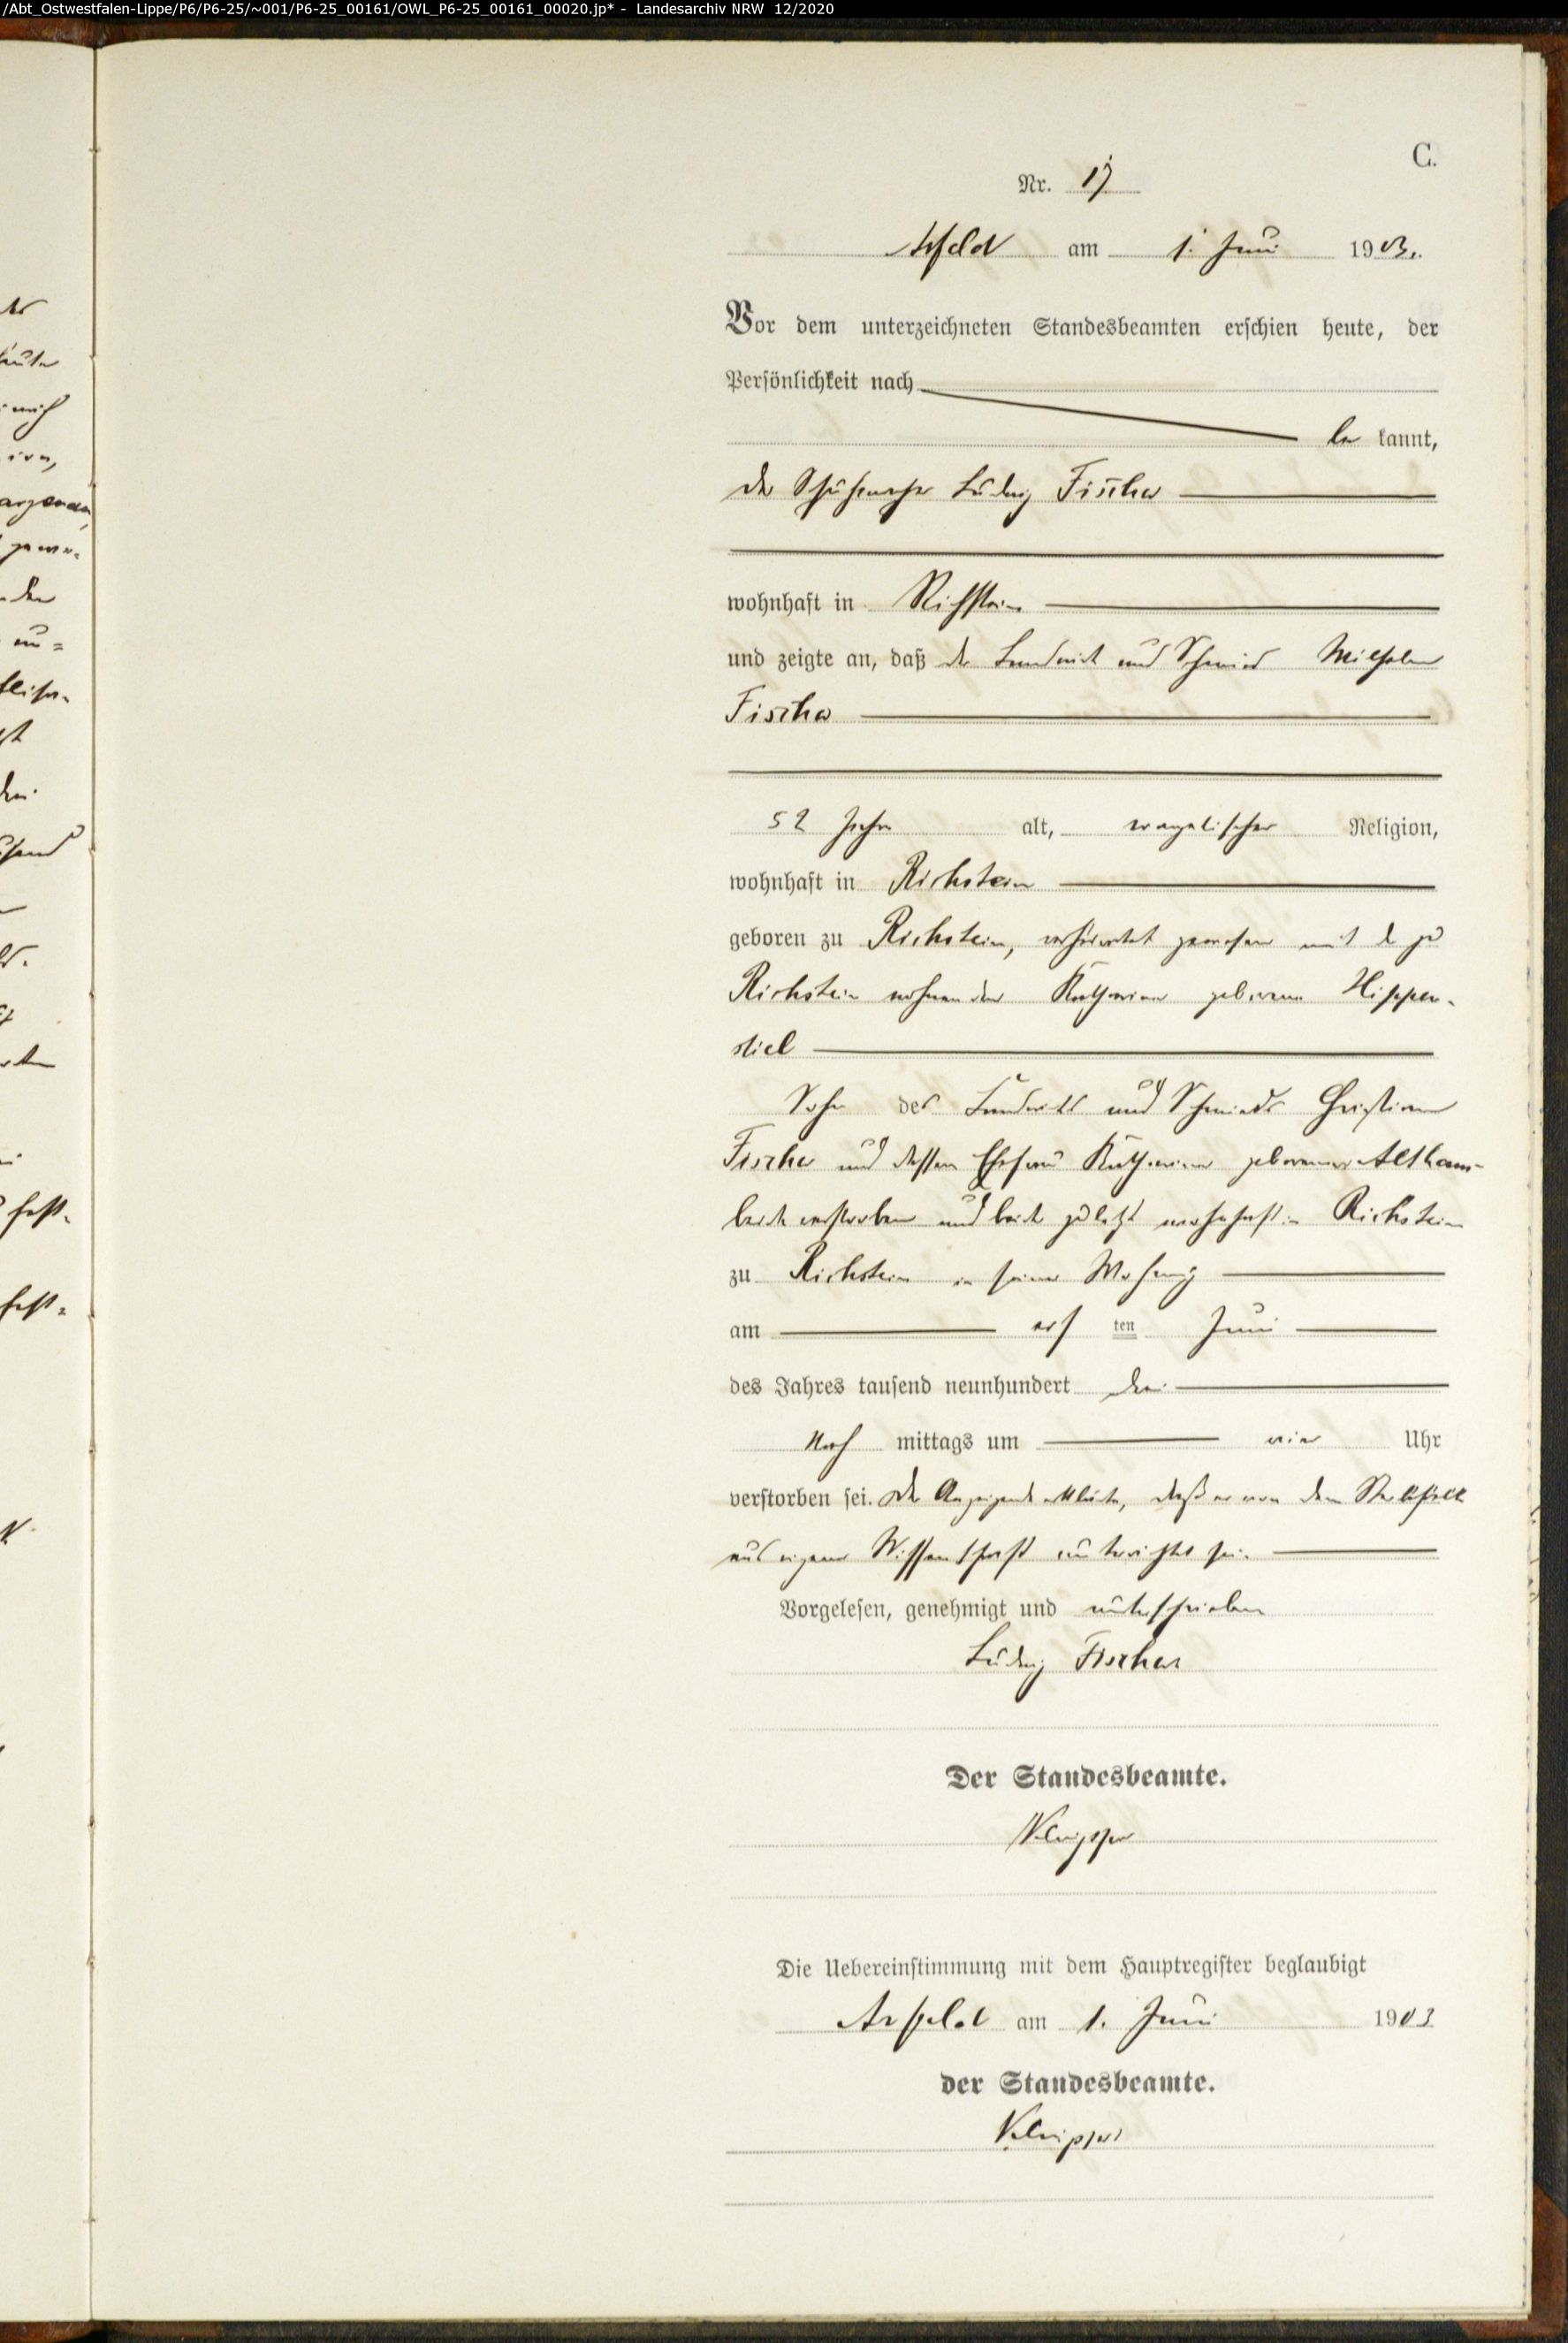 /Abt_Ostwestfalen-Lippe/P6/P6-25/~001/P6-25_00161/OWL_P6-25_00161_00020.jp* - Landesarchiv NRW 12/2020
C.
Nr. 17
Arfeld am 1. Juni 1903.
Vor dem unterzeichneten Standesbeamten erschien heute, der
Persönlichkeit nach
be kannt,
der Schuhmacher Ludwig Fischer
wohnhaft in Richstein
und zeigte an, daß der Landwirt und Schmied Wilhelm
Fischer
52 Jahre alt, evangelischer Religion,
wohnhaft in Richstein
geboren zu Richstein, verheiratet gewesen mit der zu
Richstein wohnenden Katharine geborenen Hippen-
stiel
Sohn des Landwirts und Schmieds Christian
Fischer und dessen Ehefrau Katharine geborener Althaus
beide verstorben und beide zuletzt wohnhaft in Richstein
zu Richstein in seiner Wohnung
am ersten Juni
des Jahres tausend neunhundert drei
Nach mittags um vier Uhr
verstorben sei. Der Anzeigende erklärte, daß er von dem Sterbefall
aus eigener Wissenschaft unterrichtet sei.
Vorgelesen, genehmigt und unterschrieben
Ludwig Fischer
Der Standesbeamte.
Die Uebereinstimmung mit dem Hauptregister beglaubigt
Arfeld am 1. Juni 1903
der Standesbeamte.